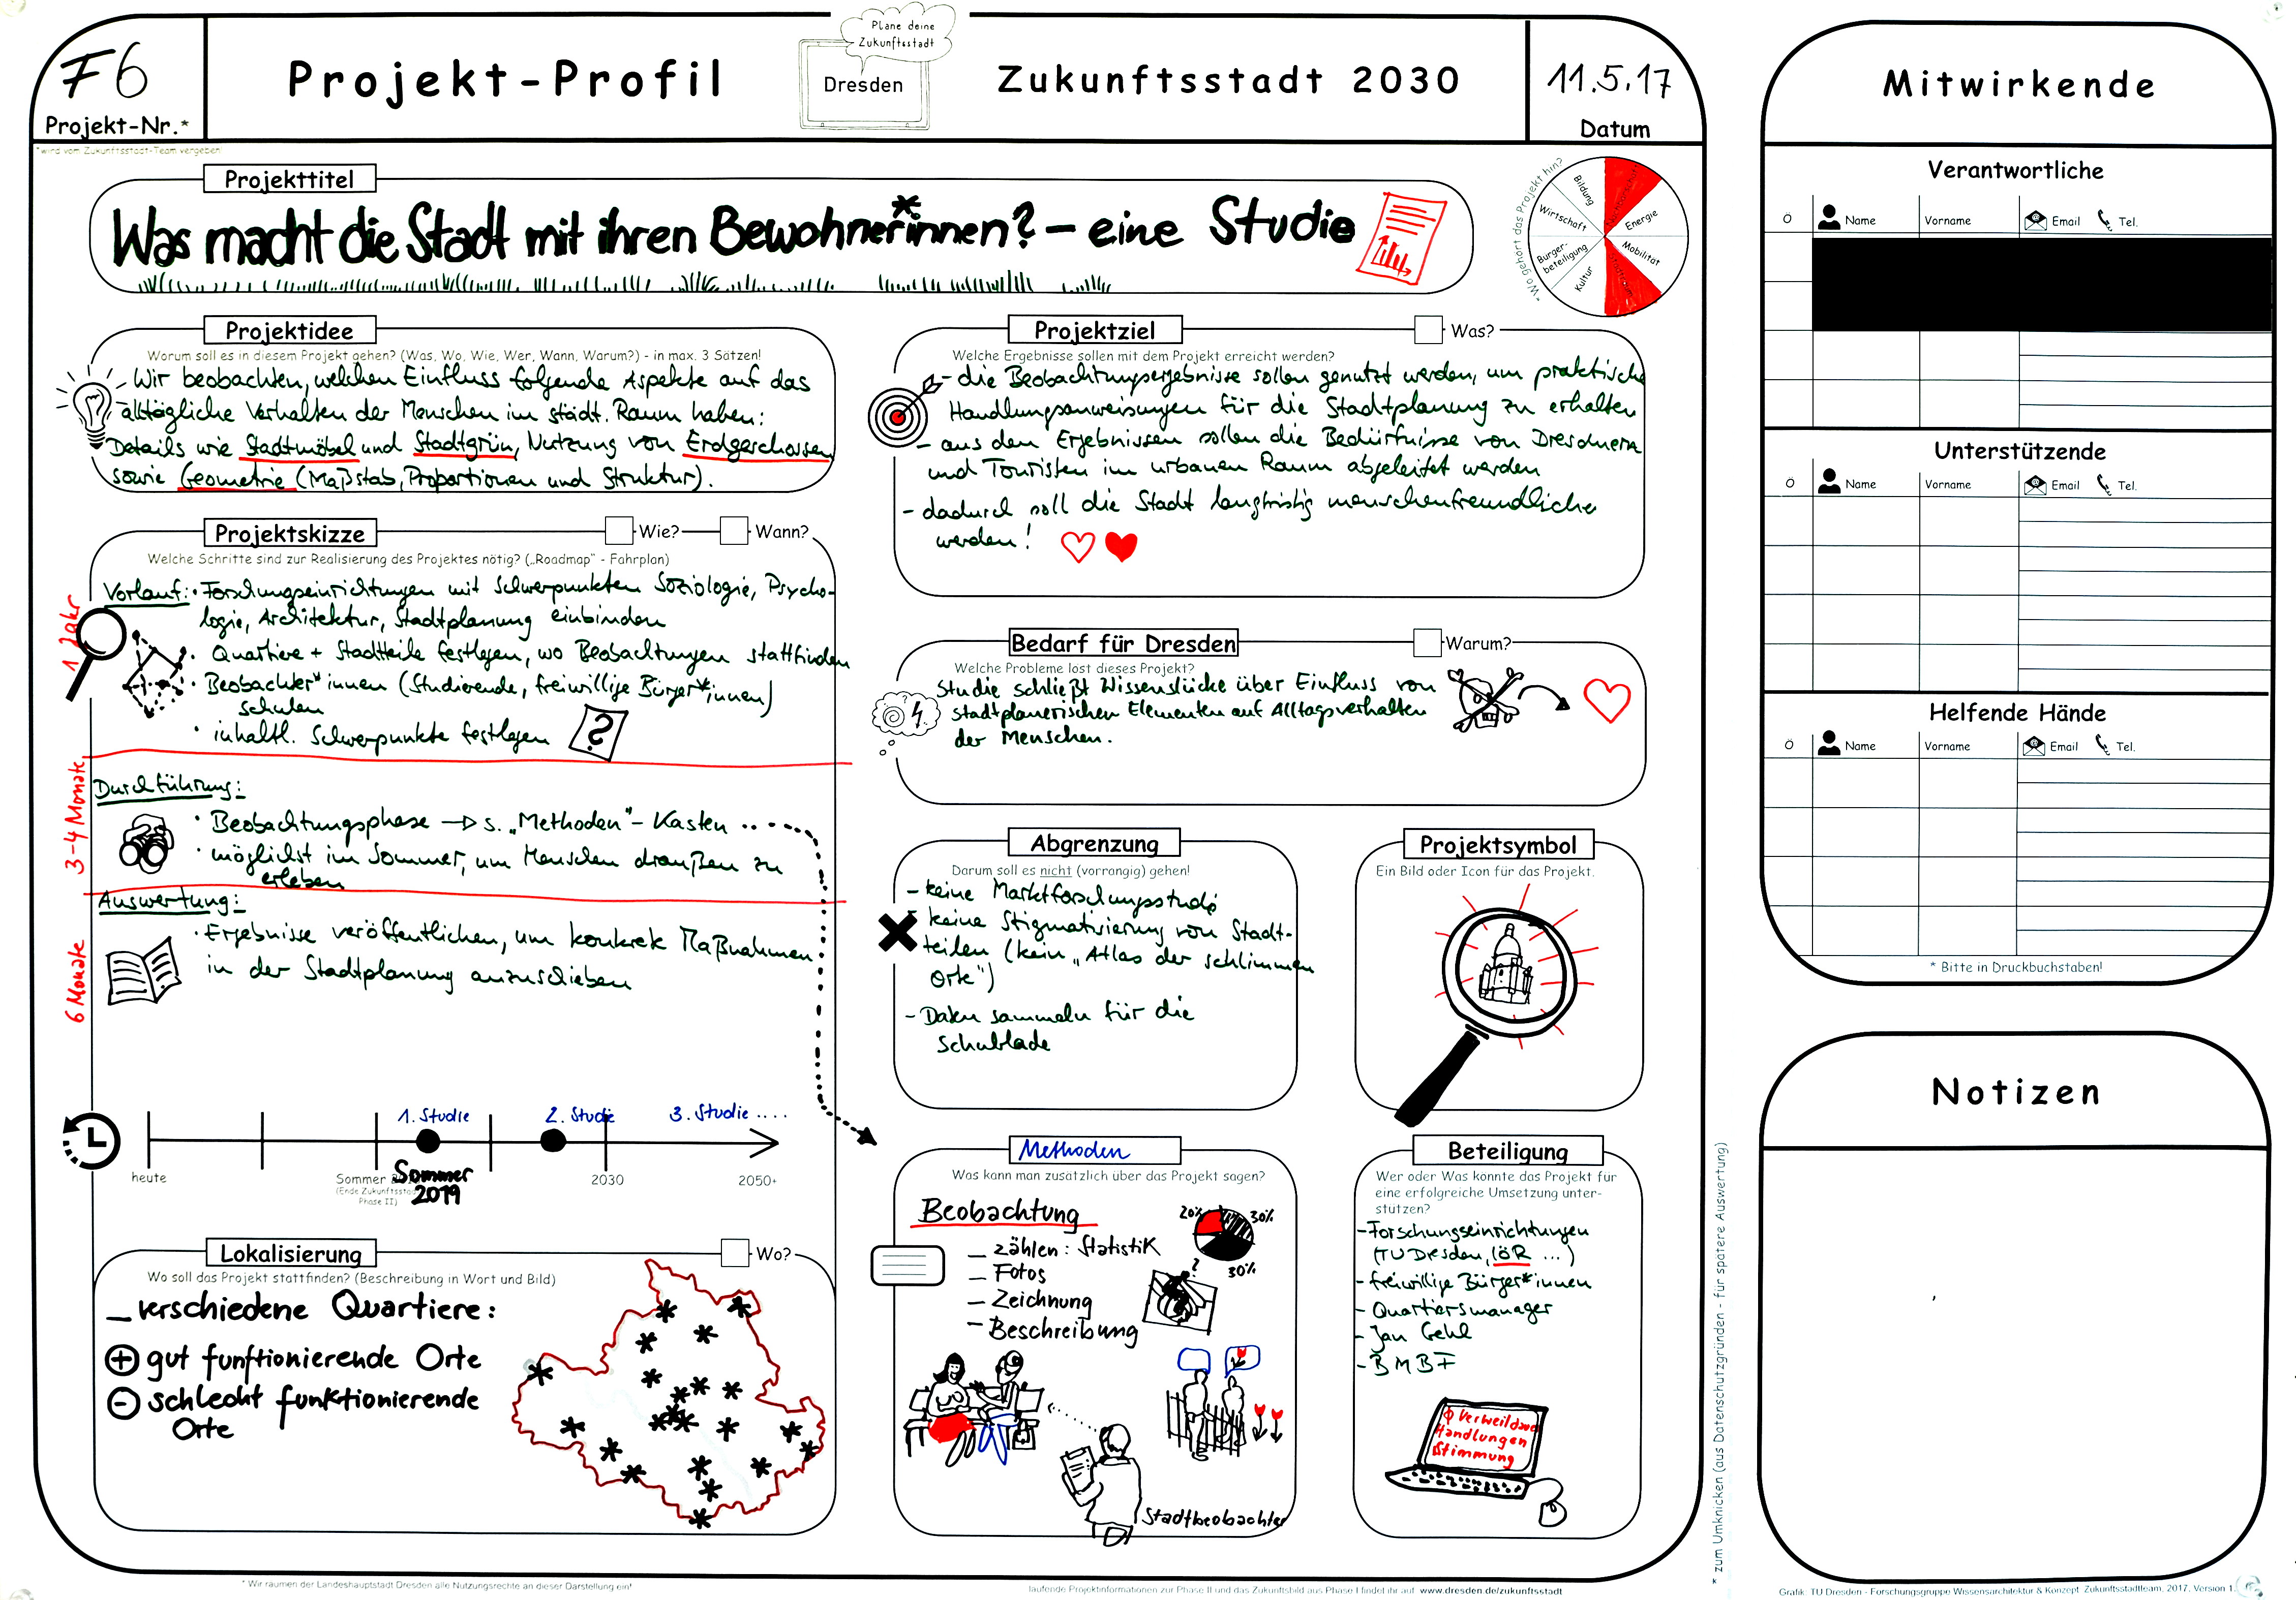 F6
Projekt-Nr.*
*wird vom Zukunftsstadt-Team vergeben
Projekt-Profil
Plane deine
Zukunftsstadt
Dresden
Zukunftsstadt 2030
11.5.17
Datum
Projekttitel
Was macht die Stadt mit ihren Bewohner*innen? – eine Studie
*Wo gehört das Projekt hin?
Bildung
Energie
Wirtschaft
Mobilität
Bürger-
beteiligung
Kultur
Projektidee
Worum soll es in diesem Projekt gehen? (Was, Wo, Wie, Wer, Wann, Warum?) - in max. 3 Sätzen!
- Wir beobachten, welchen Einfluss folgende Aspekte auf das
alltägliche Verhalten der Menschen im städt. Raum haben:
Details wie Stadtmöbel und Stadtgrün, Nutzung von Erdgeschossen
sowie Geometrie (Maßstab, Proportionen und Struktur).
Projektskizze
Wie?
Wann?
Welche Schritte sind zur Realisierung des Projektes nötig? („Roadmap" - Fahrplan)
1 Jahr
Vorlauf: • Forschungseinrichtungen mit Schwerpunkten Soziologie, Psycho-
logie, Architektur, Stadtplanung einbinden
• Quartiere + Stadtteile festlegen, wo Beobachtungen stattfinden
• Beobachter*innen (Studierende, freiwillige Bürger*innen)
schulen
• inhaltl. Schwerpunkte festlegen
?
3-4 Monate
Durchführung:
• Beobachtungsphase → s. „Methoden"- Kasten
• möglichst im Sommer, um Menschen draußen zu
erleben
6 Monate
Auswertung:
• Ergebnisse veröffentlichen, um konkrete Maßnahmen
in der Stadtplanung anzuschieben
1. Studie
2. Studie
3. Studie ....
heute
Sommer
(Ende Zukunftsstadt
Phase II)
Sommer
2019
2030
2050+
Lokalisierung
Wo?
Wo soll das Projekt stattfinden? (Beschreibung in Wort und Bild)
– verschiedene Quartiere:
+ gut funftionierende Orte
- schlecht funktionierende
Orte
Projektziel
Was?
Welche Ergebnisse sollen mit dem Projekt erreicht werden?
- die Beobachtungsergebnisse sollen genutzt werden, um praktische
Handlungsanweisungen für die Stadtplanung zu erhalten
- aus den Ergebnissen sollen die Bedürfnisse von Dresdnern
und Touristen im urbanen Raum abgeleitet werden
- dadurch soll die Stadt langfristig menschenfreundlicher
werden!
Bedarf für Dresden
Warum?
Welche Probleme löst dieses Projekt?
Studie schließt Wissenslücke über Einfluss von
stadtplanerischen Elementen auf Alltagsverhalten
der Menschen.
Abgrenzung
Darum soll es nicht (vorrangig) gehen!
- keine Marktforschungsstudie
- keine Stigmatisierung von Stadt-
teilen (kein „Atlas der schlimmen
Orte")
- Daten sammeln für die
Schublade
Projektsymbol
Ein Bild oder Icon für das Projekt.
Methoden
Was kann man zusätzlich über das Projekt sagen?
Beobachtung
– zählen: Statistik
– Fotos
– Zeichnung
– Beschreibung
20%
30%
30%
?
Stadtbeobachter
Beteiligung
Wer oder Was könnte das Projekt für
eine erfolgreiche Umsetzung unter-
stützen?
- Forschungseinrichtungen
(TU Dresden, IÖR ...)
- freiwillige Bürger*innen
- Quartiersmanager
- Jan Gehl
- BMBF
Ø Verweildauer
Handlungen
Stimmung
* Wir räumen der Landeshauptstadt Dresden alle Nutzungsrechte an dieser Darstellung ein!
laufende Projektinformationen zur Phase II und das Zukunftsbild aus Phase I findet ihr auf www.dresden.de/zukunftsstadt
* zum Umknicken (aus Datenschutzgründen - für spätere Auswertung)
Mitwirkende
Verantwortliche
Ö Name Vorname Email Tel.
Unterstützende
Ö Name Vorname Email Tel.
Helfende Hände
Ö Name Vorname Email Tel.
* Bitte in Druckbuchstaben!
Notizen
Grafik: TU Dresden - Forschungsgruppe Wissensarchitektur & Konzept: Zukunftsstadtteam, 2017, Version 1.